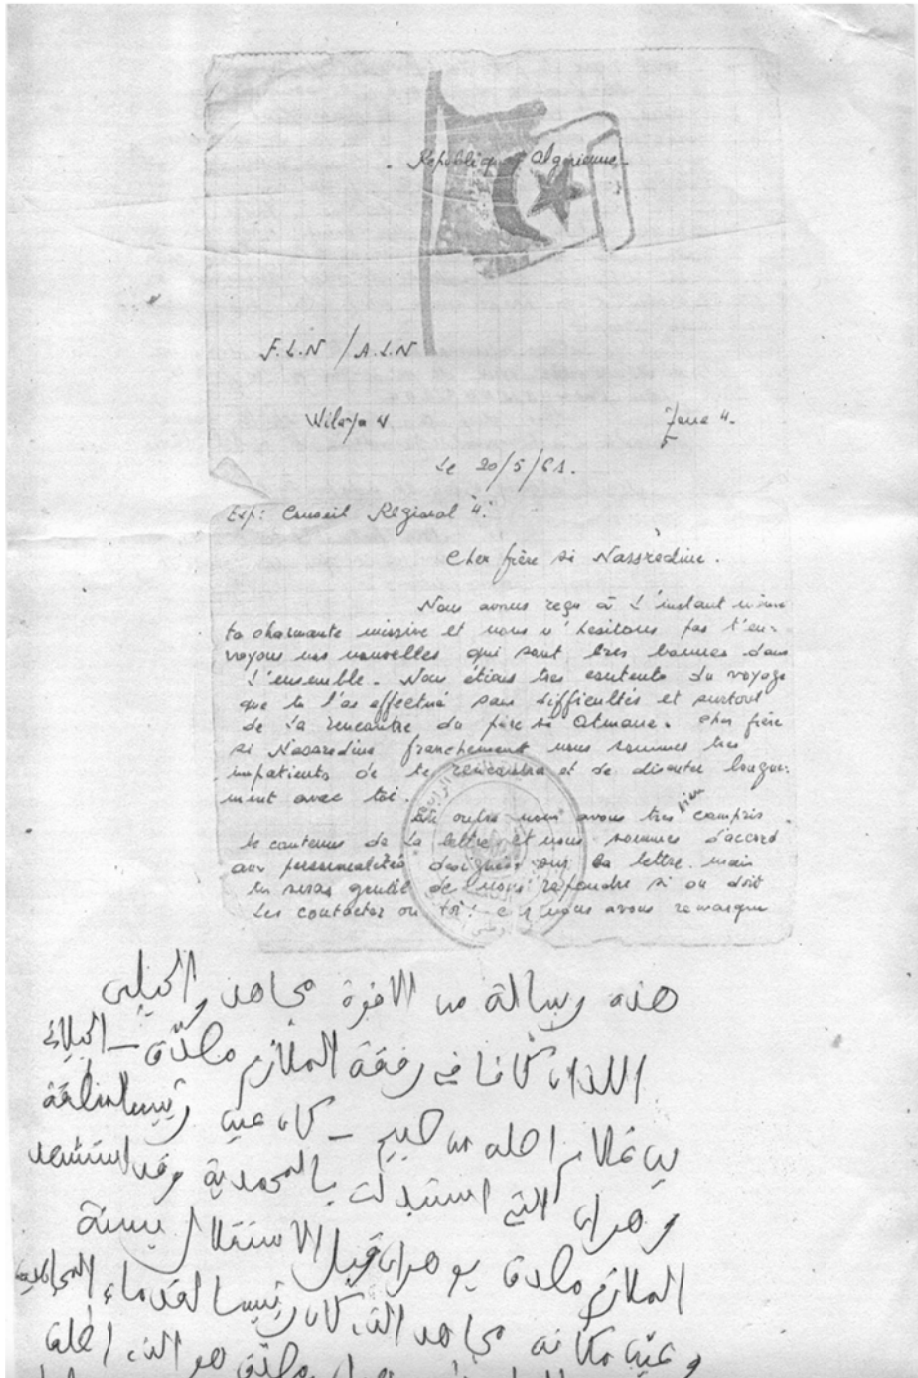 - République Algérienne -
F.L.N / A.L.N
Wilaya V. Zone 4.
Le 20/5/61.
Exp: Conseil Régional 4.
Cher frère si Nassredine.
Nous avons reçu à l'instant même
ta charmante missive et nous n'hesitons pas t'en-
voyons nos nouvelles qui sont tres bonnes dans
l'ensemble. Nous étions tres contents du voyage
que tu l'as effectué sans difficultés et surtout
de la rencontre du frère si Otmane. Cher frère
si Nassredine franchement nous sommes tres
impatients de te rencontrer et de discuter longue-
ment avec toi.
En outre nous avons tres bien compris
le contenu de la lettre et nous sommes d'accord
aux personnalités designées sur la lettre. mais
tu seras gentil de nous repondre si on doit
les contacter ou toi: nous avons remarqué
هذه رسالة من الاخوة مجاهد والجيلالي
اللذان كانا في رفقة الملازم صادق - الجيلالي
بن علام اصله من - كان عين رئيسا لمنطقة
وهران التي استبدلت بالمحمدية وقد استشهد
الملازم صادق بوهران قبل الاستقلال بسنة
وعين مكانه مجاهد الذي كان رئيسا لقدماء المجاهدين
صادق هو الذي